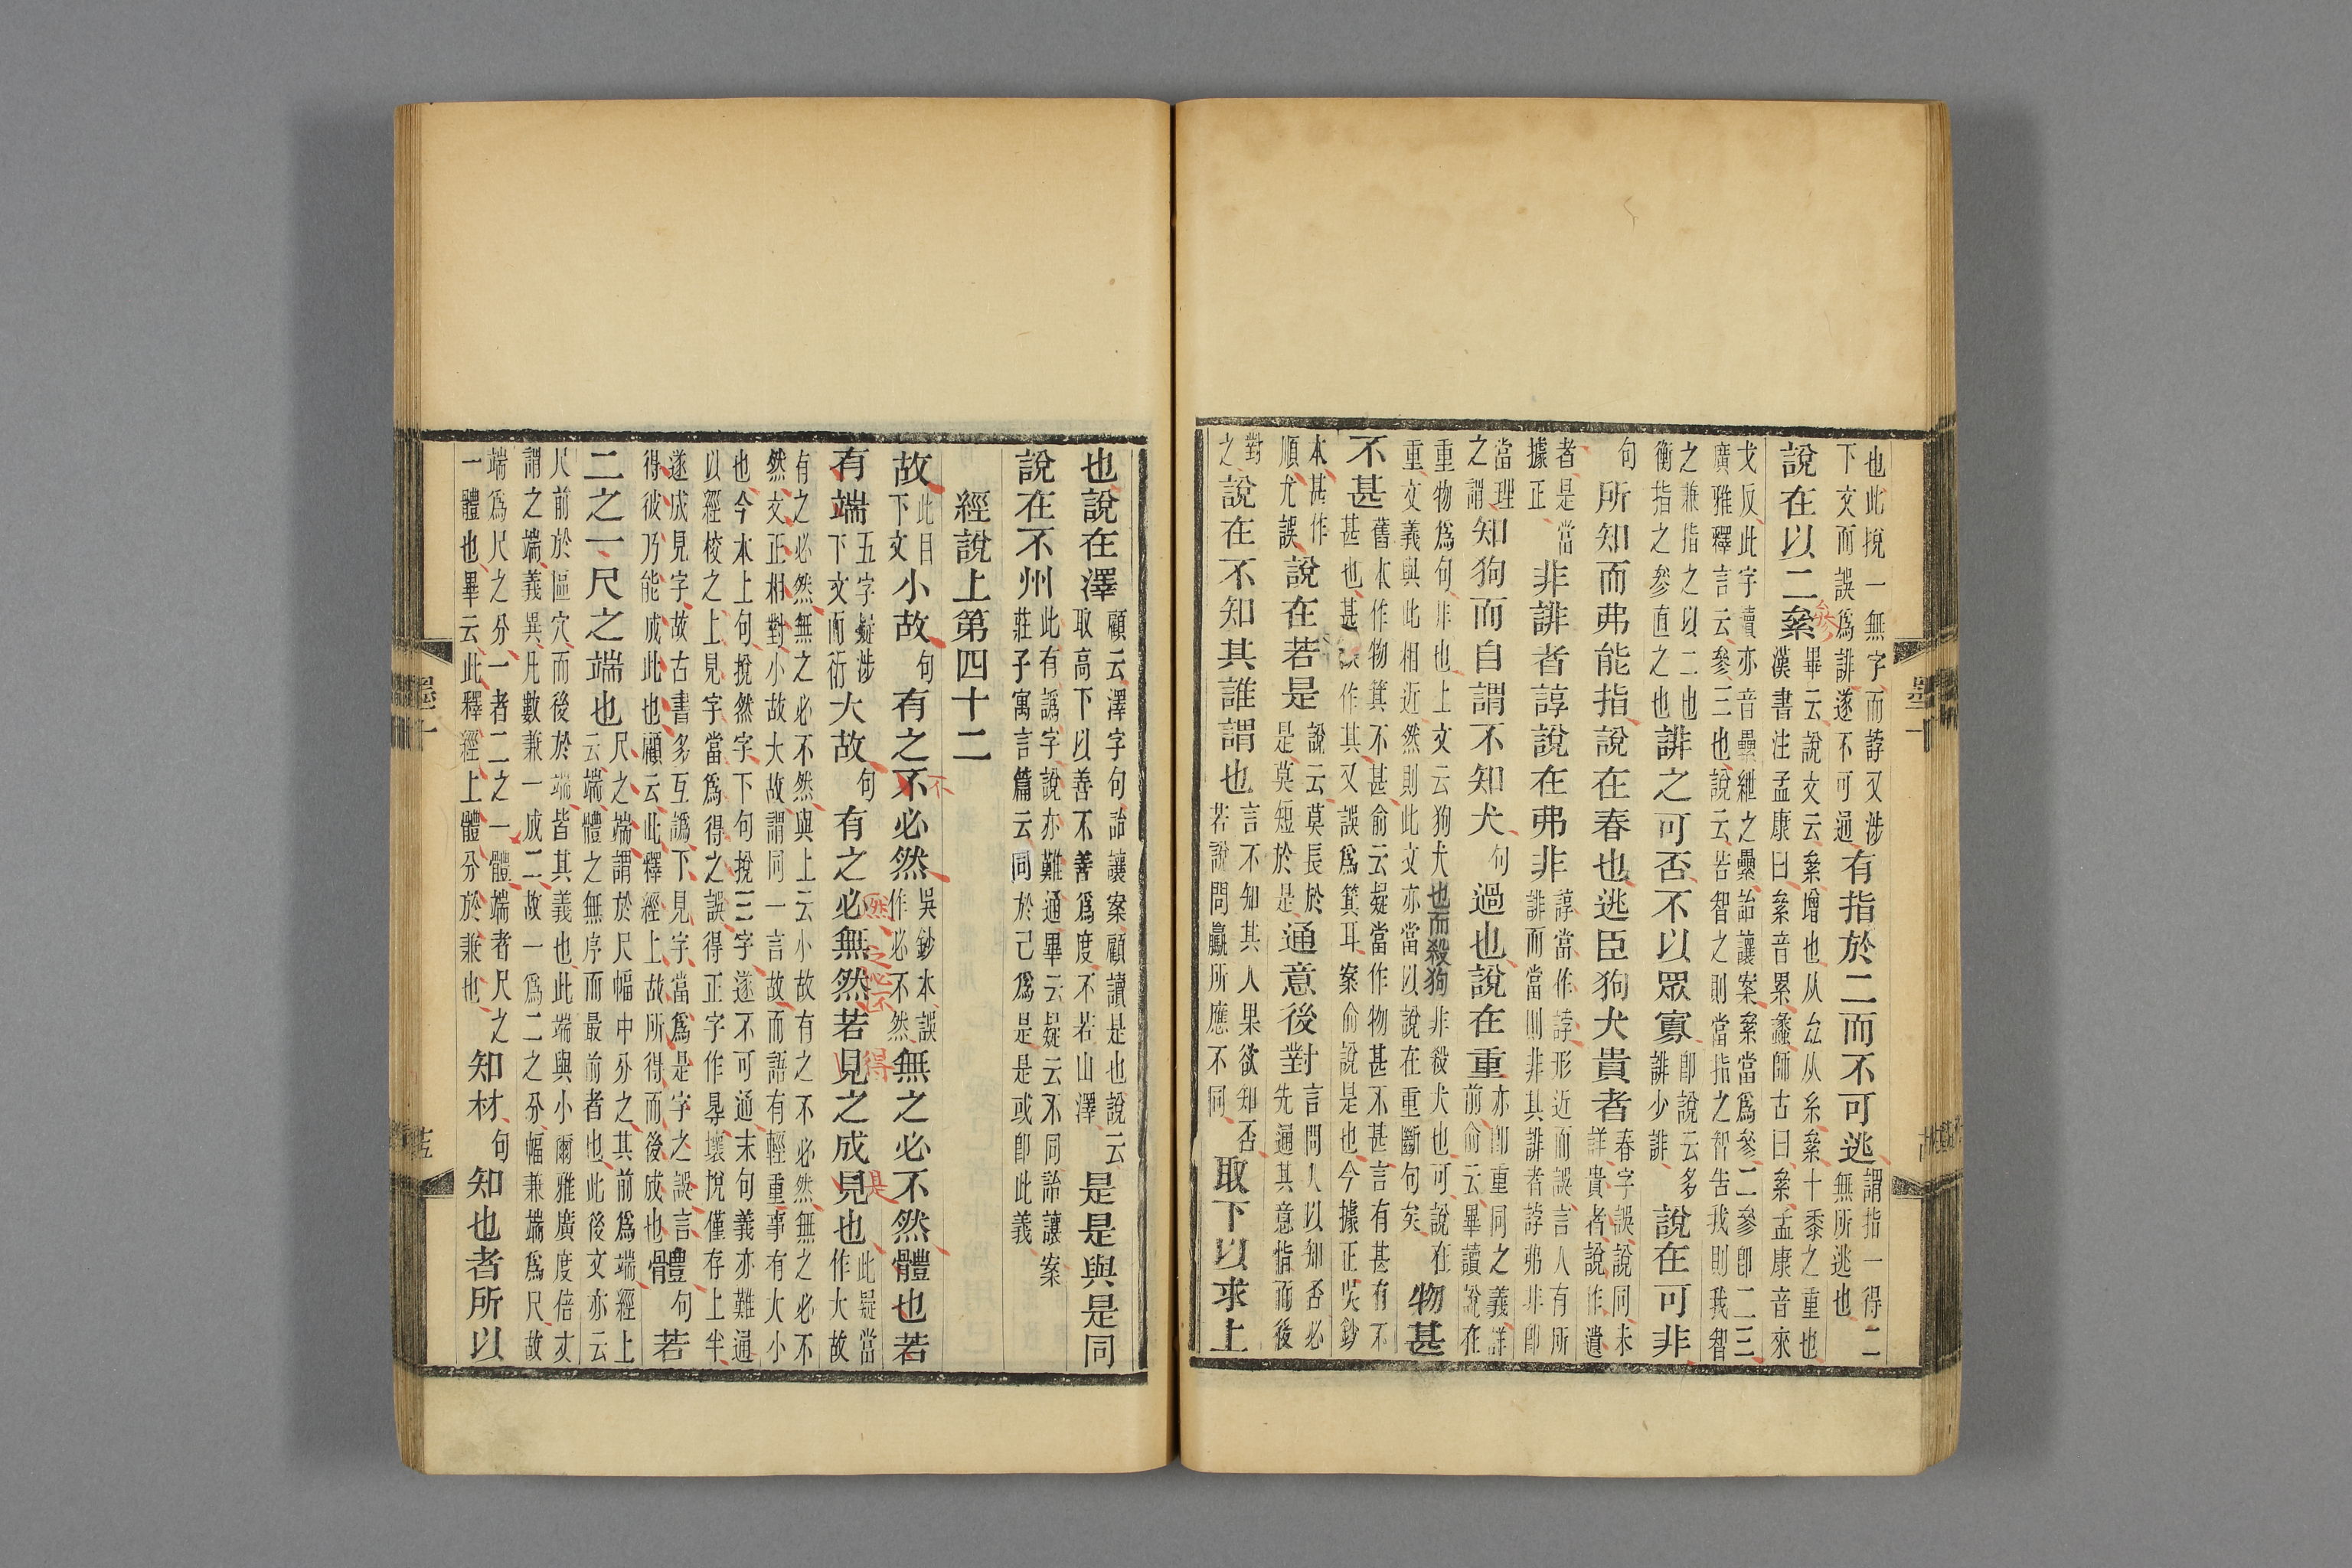 也此挩一無字而誖又涉
下文而誤爲誹遂不可通
有指於二而不可逃
謂指一得二
無所逃也
說在以二絫
參
畢云說文云絫增也从厽从糸絫十黍之重也
漢書注孟康曰絫音累蠡師古曰絫孟康音來
戈反此字讀亦音纍紲之纍詒讓案絫當爲參二參卽二三
廣雅釋言云參三也說云若智之則當指之智告我則我智
之兼指之以二也
衡指之參直之也
誹之可否不以眾寡
卽說云多
誹少誹
說在可非
句
所知而弗能指說在春也逃臣狗犬貴者
春字誤說同未
詳貴者說作遺
者是當
據正
非誹者諄說在弗非
諄當作誖形近而誤言人有所
誹而當則非其誹者誖弗非卽
當理
之謂
知狗而自謂不知犬
句
過也說在重
亦卽重同之義詳
前俞云畢讀說在
重物爲句非也上文云狗犬也而殺狗非殺犬也可說在
重文義與此相近然則此文亦當以說在重斷句矣
物甚
不甚
舊本作物箕不甚俞云疑當作物甚不甚言有甚有不
甚也甚誤作其又誤爲箕耳案俞說是也今據正吳鈔
本甚作
順尤誤
說在若是
說云莫長於
是莫短於是
通意後對
言問人以知否必
先通其意指而後
對
之
說在不知其誰謂也
言不知其人果欲知否
若說問臝所應不同
取下以求上
墨十
也說在澤
顧云澤字句詒讓案顧讀是也說云
取高下以善不善爲度不若山澤
是是與是同
說在不州
此有譌字說亦難通畢云疑云不同詒讓案
莊子寓言篇云同於己爲是是或卽此義
經說上第四十二
故
此目
下文
小故
句
有之不必然
不
吳鈔本誤
作必不然
無之必不然體也若
有端
五字疑涉
下文而衍
大故
句
有之必無然若見之成見也
然
之必不
得
是
此疑當
作大故
有之必然無之必不然與上云小故有之不必然無之必不
然文正相對小故大故謂同一言故而語有輕重事有大小
也今本上句挩然字下句挩三字遂不可通末句義亦難通
以經校之上見字當爲得之誤得正字作㝵壞挩僅存上半
遂成見字故古書多互譌下見字當爲是字之誤言
得彼乃能成此也顧云此釋經上故所得而後成也
體
句
若
二之一尺之端也
尺之端謂於尺幅中分之其前爲端經上
云端體之無序而最前者也此後文亦云
尺前於區穴而後於端皆其義也此端與小爾雅廣度倍丈
謂之端義異凡數兼一成二故一爲二之分幅兼端爲尺故
端爲尺之分一者二之一體端者尺之
一體也畢云此釋經上體分於兼也
知材
句
知也者所以
墨十